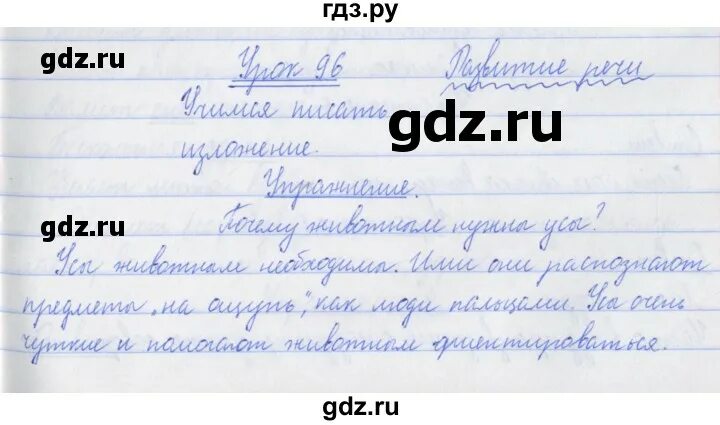 гдз.ру
gdz.ru
Урок 96 Развитие речи
Учимся писать
gdz.ru
изложение.
Упражнение.
gdz.ru
Почему животным нужны усы?
Усы животным необходимы. Ими они распознают
предметы „на ощупь", как люди пальцами. Усы очень
чуткие и помогают животным ориентироваться.
gdz.ru
gdz.ru